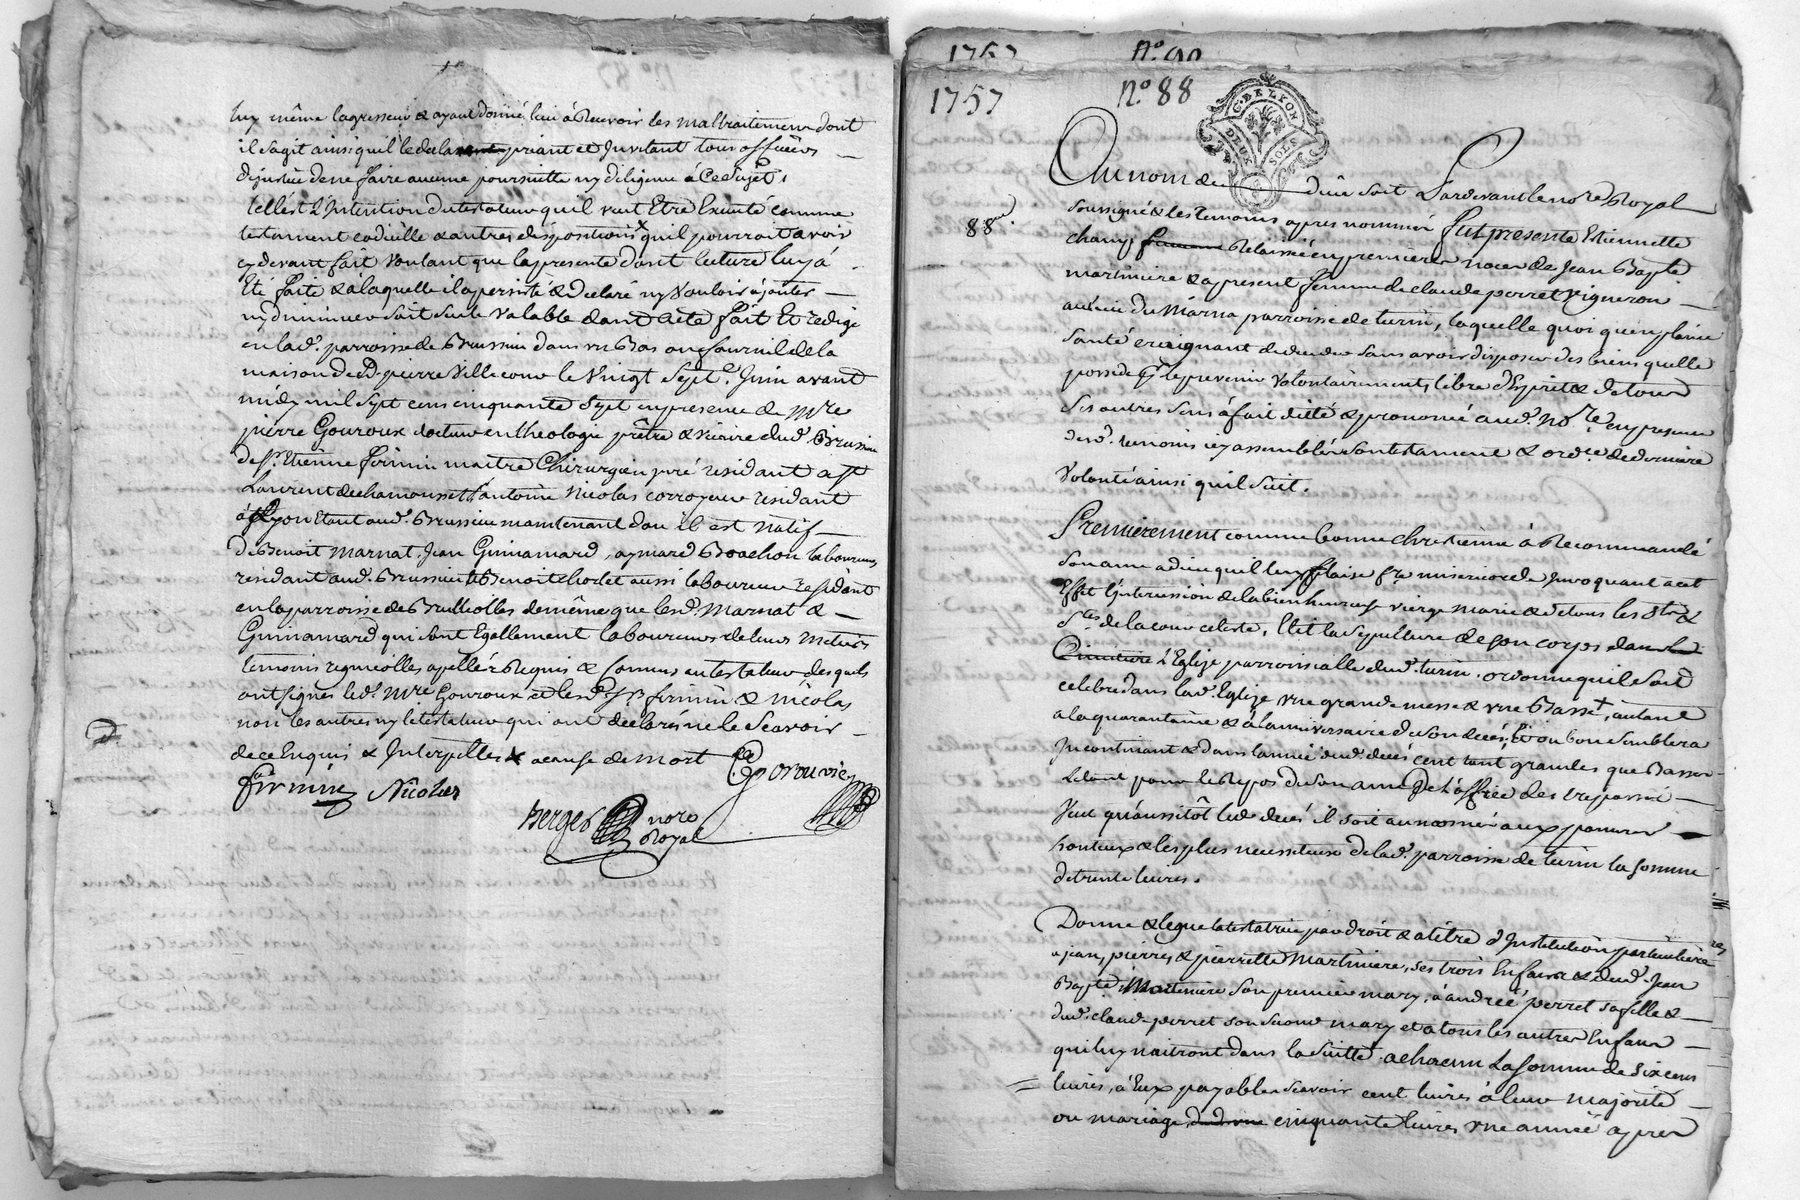 luy même lagresseur & ayant donné lieu à Recevoir les maltraitemens dont
il sagit ainsi quil le declare priant et Invitant tous officiers
de justice de ne faire aucune poursuitte ny diligence à Ce Sujet,
telle est L'Intention du testateur quil veut Etre Executé comme
testament codicille & autres dispositions quil pourroit avoir
cy devant fait voulant que la presente dont lecture luy á
Eté faite & à laquelle il a persisté & declaré ny vouloir ajouter
ny diminuer soit seule valable dont acte fait Et redigé
en lad. parroisse de Brussieu dans un Bas ou fournil de la
maison de D. pierre Villecour le Vingt Sept. Juin avant
midy mil sept cens cinquante Sept en presence de Mre
pierre Gouroux docteur en theologie prêtre & vicaire dud. Brussieu
de Sr. Etienne firmin maitre Chirurgien juré residant a St
Laurent de chamousset antoine Nicolas corroyeur residant
à Lyon Etant aud. Brussieu maintenant dou il est Natif
de Benoit Marnat, Jean Guinamard, aymard Boachon laboureurs
residant aud. Brussieu & Benoit chorlet aussi laboureur residant
en la parroisse de Brullioles de même que lesd. Marnat &
Guinamard qui sont Egallement laboureurs de leurs metiers
temoins regnicolles apellés Requis & Connus du testateur desquels
ont signés led. Mre Gouroux et lesd. Srs firmin & Nicolas
non les autres ny le testateur qui ont declarés ne le Scavoir
de ce Enquis & Interpellés a cause de mort
firmin Nicolas
Berger nore
Royal
1757 No 90
1757 No 88
G. DE LYON
DEUX SOLS
88e.
Au nom de dieu soit Pardevant le nore Royal
soussigné & les temoins apres nommés fut presente Etiennette
champ Relaissée en premieres noces de Jean Bapte
martiniere & a present femme de claude perret vigneron
au lieu du Márna parroisse de turin, laquelle quoi qu'en pleine
santé craignant deceder sans avoir disposer des biens quelle
possede pr. le prevenir volontairement, libre d'Esprit & de tous
ses autres sens à fait dicté & prononcé aud. Nore en presence
desd. temoins icy assemblés son testament & ordce. de derniere
volonté ainsi quil suit.
Premierement comme bonne chretienne à Recommandé
son ame a dieu quil luy plaise fre misericorde Invoquant a cet
Effet l'intercession de la bienheureuse vierge Marie & de tous les Sts &
Stes de la cour celeste, Elit la sepulture de son corps dans
Cimitiere L'Eglise parroissialle dud. turin. ordonne quil soit
celebré dans lad. Eglise une grande messe & une Basse, autant
a la quarantaine & à la nniversaire de son decés, Et ou bon semblera
Incontinant & dans lannée dud. decés cent tant grandes que Basses
Letout pour le Repos de son ame Et à Effice des trepassés
Veut qu'aussitôt led. decés il soit aumosné aux pauvres
honteux & les plus necessiteux de lad. parroisse de turin la somme
de trente livres.
Donne & legue la testatrice par droit & a titre d'Institution particuliere
a jean, pierre, & pierrette Martiniere, ses trois Enfans & dud. Jean
Bapte Martiniere son premier mary, à andrée perret sa fille &
dud. claude perret son second mary et a tous les autres Enfans
qui luy naitront dans la Suitte a chacun La Somme de Six cens
livres, à Eux payables Scavoir cent livres à leur Majorité
ou mariage, cinquante livres une année apres